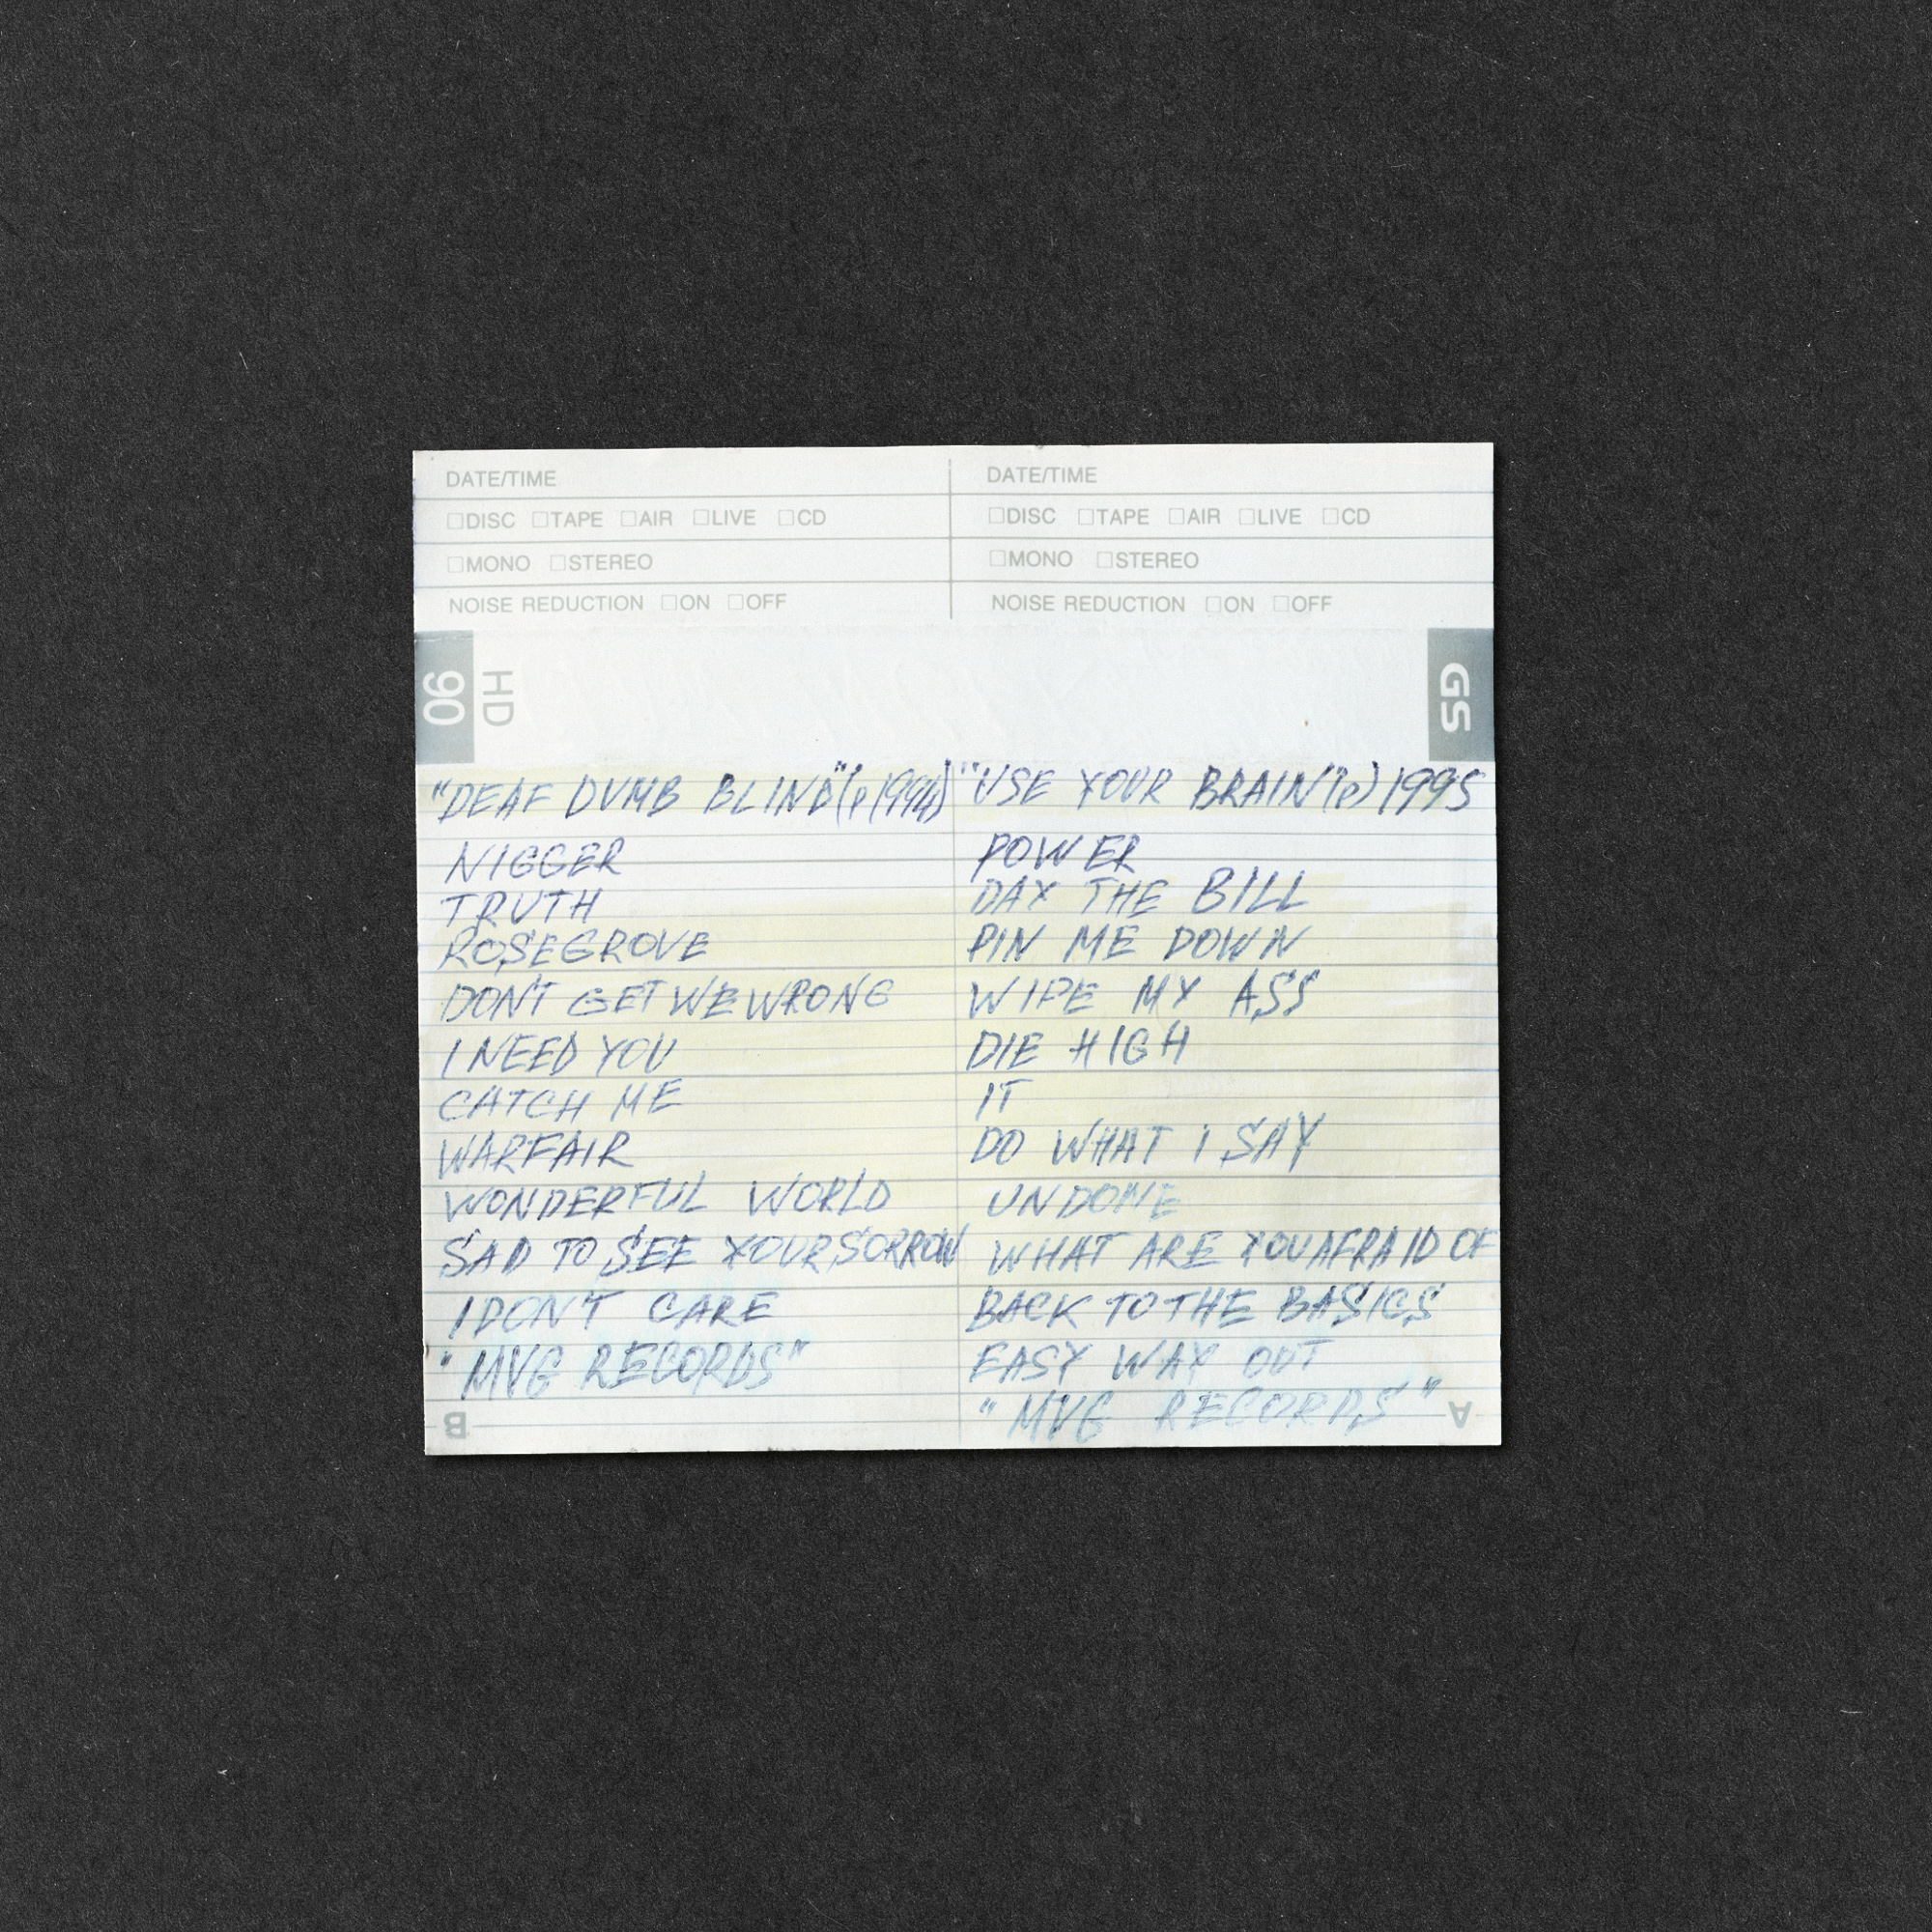 DATE/TIME
□DISC □TAPE □AIR □LIVE □CD
□MONO □STEREO
NOISE REDUCTION □ON □OFF
DATE/TIME
□DISC □TAPE □AIR □LIVE □CD
□MONO □STEREO
NOISE REDUCTION □ON □OFF
HD
90
GS
"DEAF DUMB BLIND" (p 1994)
NIGGER
TRUTH
ROSEGROVE
DON'T GET WE WRONG
I NEED YOU
CATCH ME
WARFAIR
WONDERFUL WORLD
SAD TO SEE YOUR SORROW
I DON'T CARE
"MVG RECORDS"
B
"USE YOUR BRAIN" (p) 1995
POWER
DAY THE BILL
PIN ME DOWN
WIPE MY ASS
DIE HIGH
IT
DO WHAT I SAY
UNDONE
WHAT ARE YOU AFRAID OF
BACK TO THE BASICS
EASY WAY OUT
"MVG RECORDS"
A